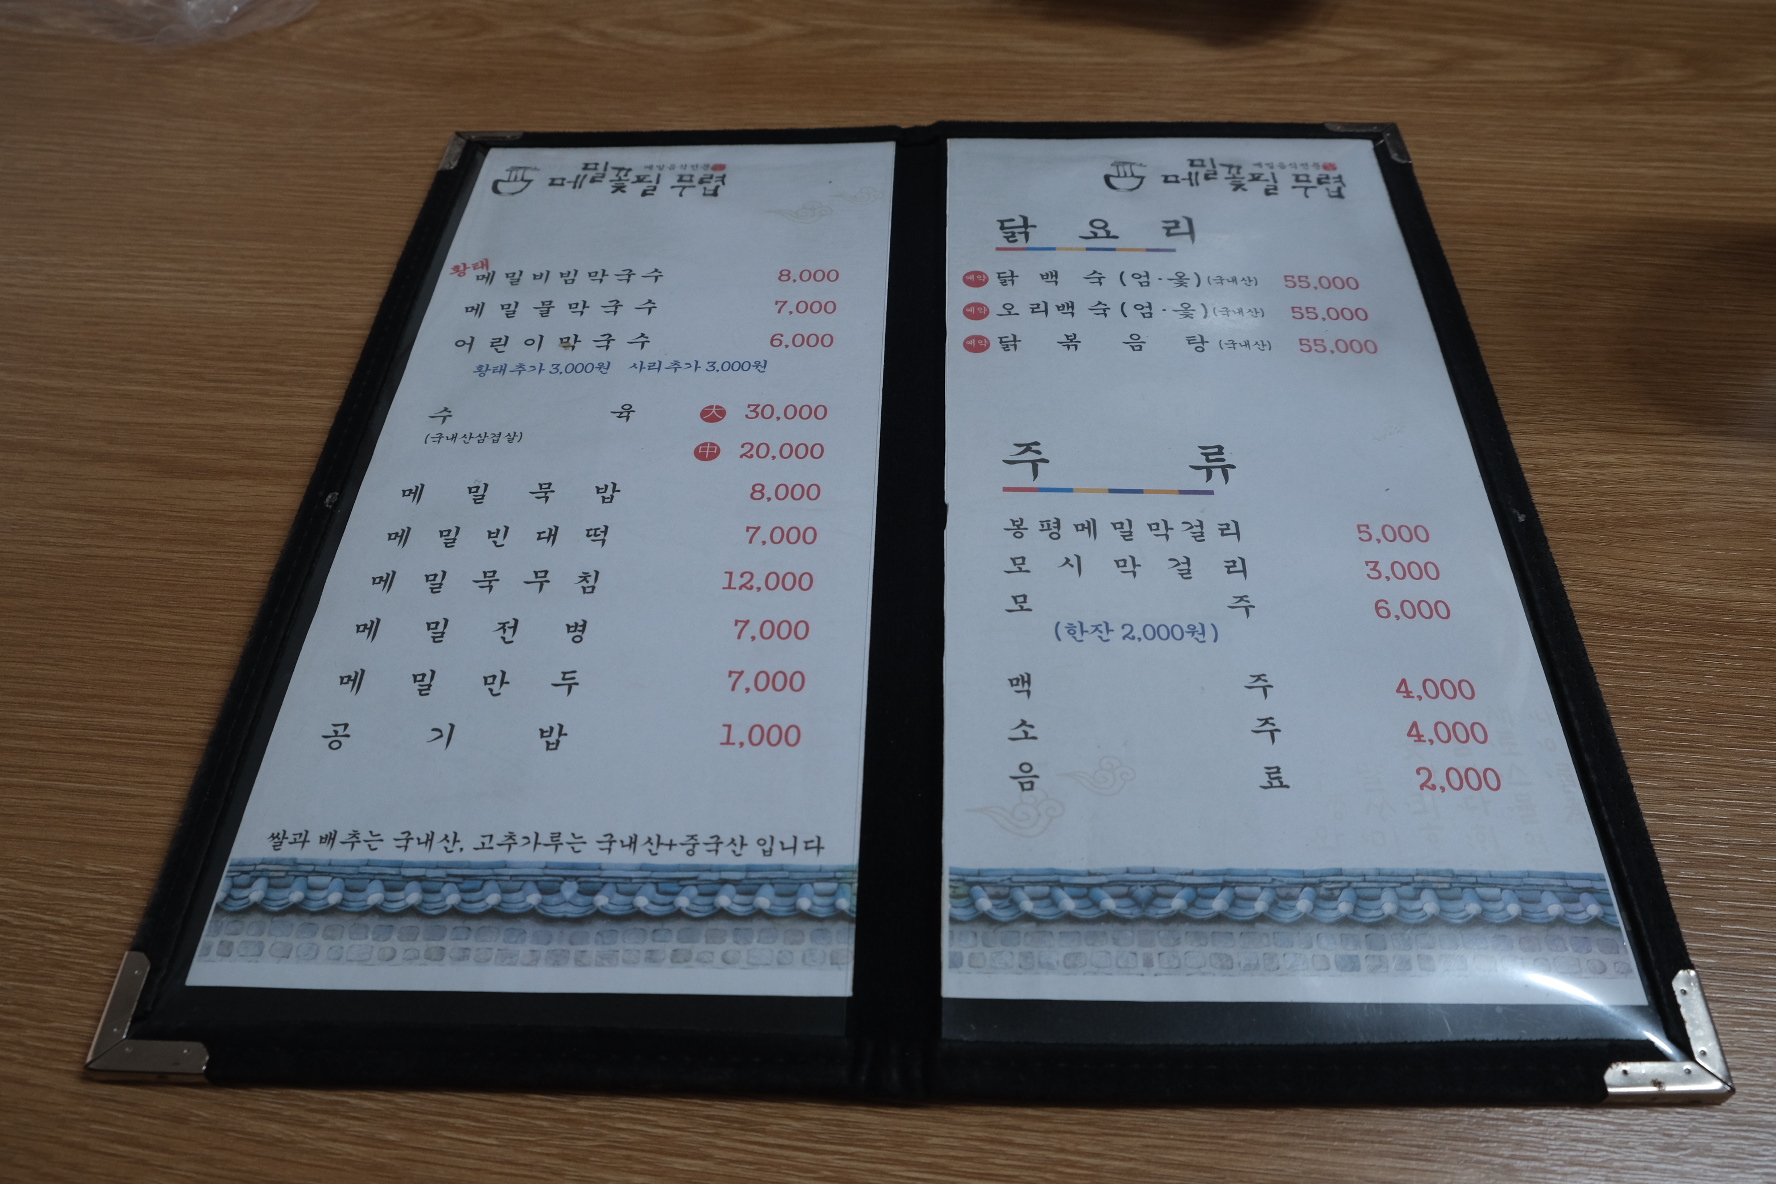 메밀꽃필 무렵
메밀음식전문
황태
메밀비빔막국수 8,000
메밀물막국수 7,000
어린이막국수 6,000
황태추가 3,000원 사리추가 3,000원
수육 大 30,000
(국내산삼겹살)
中 20,000
메밀묵밥 8,000
메밀빈대떡 7,000
메밀묵무침 12,000
메밀전병 7,000
메밀만두 7,000
공기밥 1,000
쌀과 배추는 국내산, 고추가루는 국내산+중국산 입니다
메밀꽃필 무렵
메밀음식전문
닭요리
예약 닭백숙(엄·옻)(국내산) 55,000
예약 오리백숙(엄·옻)(국내산) 55,000
예약 닭볶음탕(국내산) 55,000
주류
봉평메밀막걸리 5,000
모시막걸리 3,000
모주 6,000
(한잔 2,000원)
맥주 4,000
소주 4,000
음료 2,000